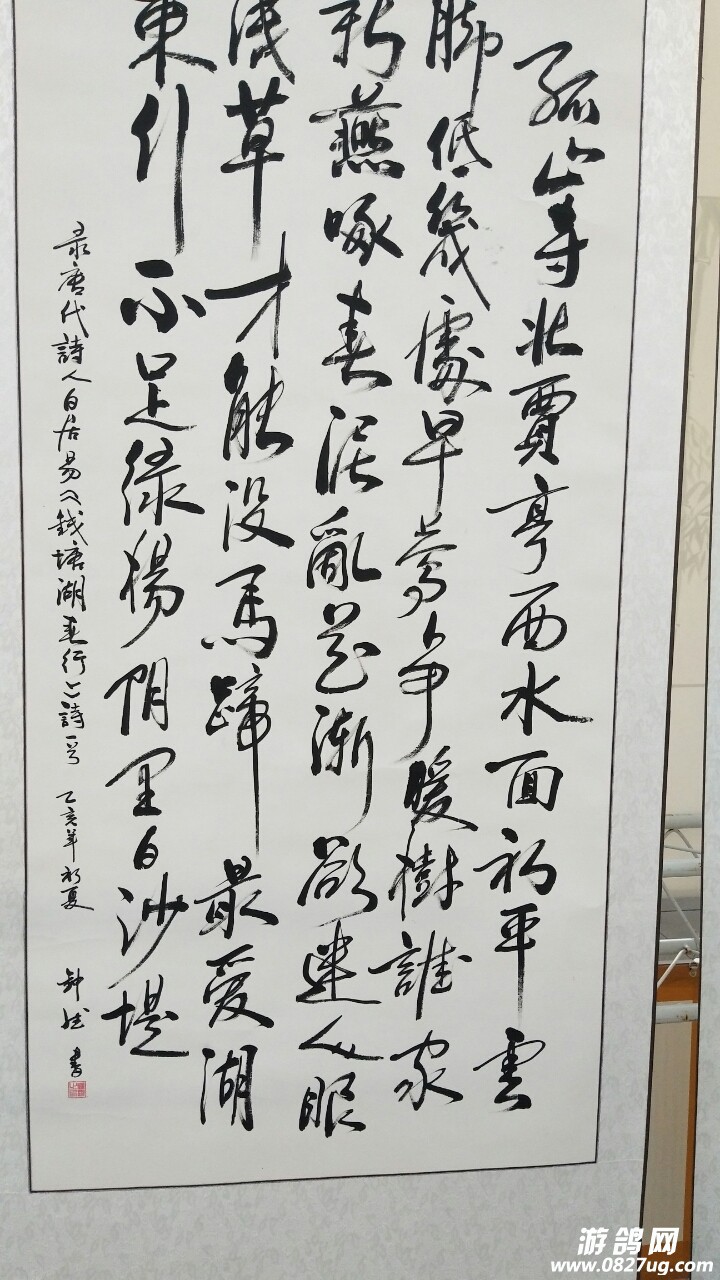 孤山寺北賈亭西水面初平雲
脚低幾處早莺争暖樹誰家
新燕啄春泥亂花漸欲迷人眼
浅草才能没馬蹄最爱湖
東行不足绿楊阴里白沙堤
录唐代詩人白居易《錢塘湖春行》詩一首 乙亥年初夏 书
游鸽网
www.0827ug.com